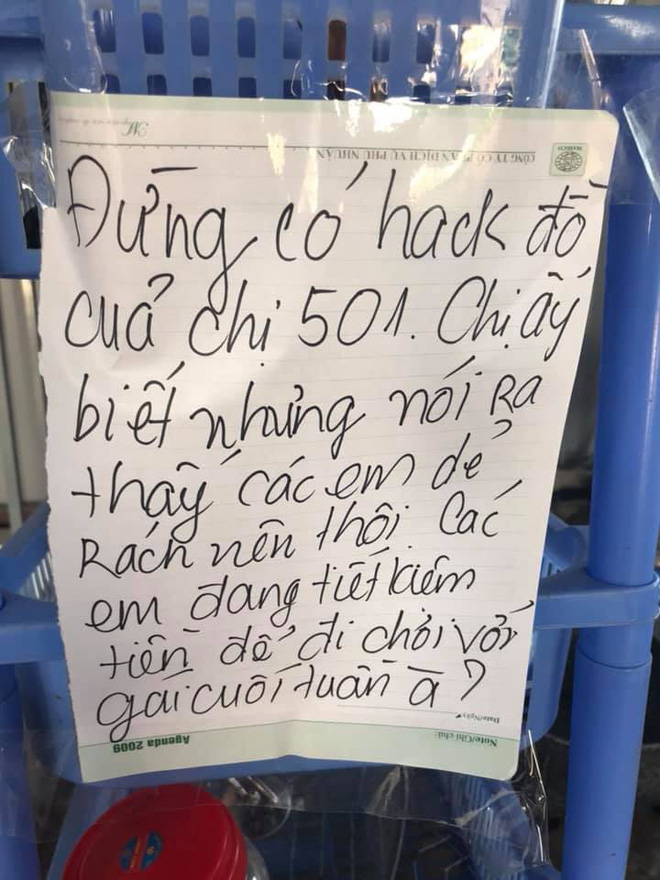 CÔNG TY CỔ PHẦN DỊCH VỤ PHÚ NHUẬN
MASECO
Đừng có hack đồ
cuả chị 501. Chị ấy
biết nhưng nói Ra
thấy các em dẻ
Rách nên thôi. Các
em đang tiết kiệm
tiền để đi chơi với
gái cuối tuần à?
Date/Ngày
Note/Ghi chú:
Agenda 2009